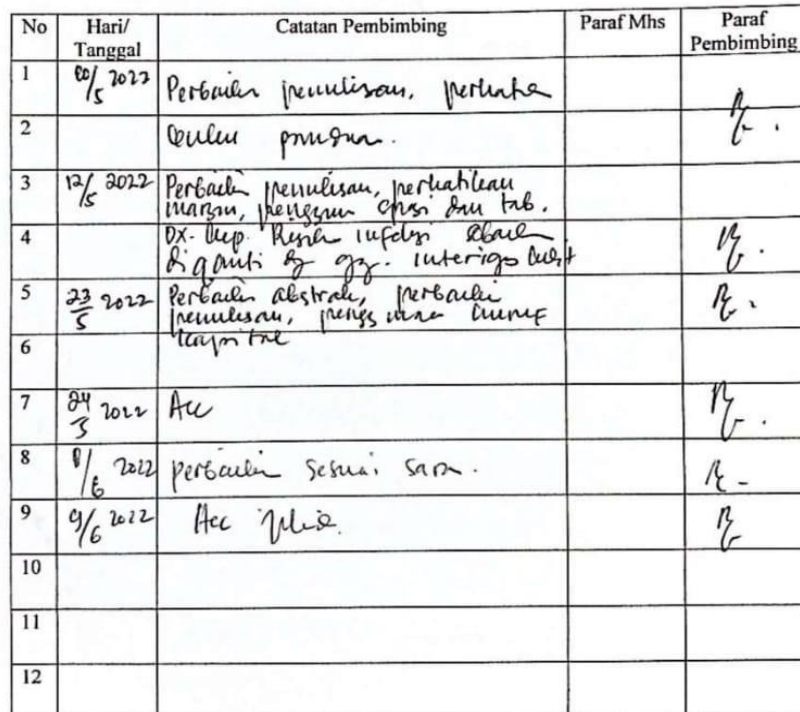 No Hari/ Tanggal Catatan Pembimbing Paraf Mhs Paraf Pembimbing
1 /5 2022 Perbaiki penulisan, perhatikan
2
3 12/5 2022 Perbaiki penulisan, perhatikan
margin, spasi dan tab.
4 DX. Kep. Resiko infeksi
diganti gg. interigas kulit
5 23/5 2022 Perbaiki abstrak, perbaiki
penulisan, penggunaan huruf
6 kapital
7 24/5 2022 Acc
8 8/6 2022 perbaiki sesuai saran.
9 9/6 2022 Acc
10
11
12